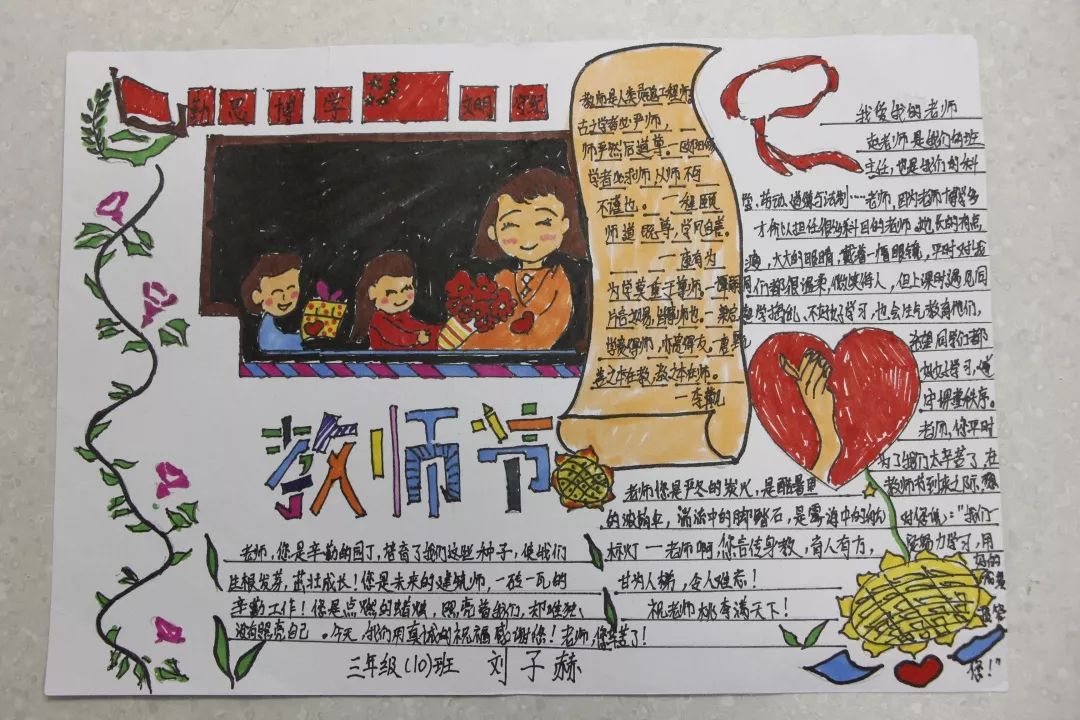 勤 思 博 学 文明 守纪
教师是人类灵魂工程师
古之学者必严师，
师严然后道尊。一欧阳修
学者必求师从师不可
不谨也。一程颐
师道既尊，学风自善。
一康有为
为学莫重于尊师。一谭嗣同
善之本在教，教之本在师。
一李觏
我爱我的老师
赵老师是我们的班
主任，也是我们的科
学、劳动、道德与法制……老师，因为老师博学多
才所以担任很多科目的老师。她长的有点
大大的眼睛，戴着一幅眼镜，平时对我
们都很温柔，微笑待人，但上课时遇见同
学捣乱，不好好学习，也会生气教育他们，
希望同学们都
好好学习，遵
守课堂秩序。
老师，您平时
为了我们太辛苦了，在
教师节到来之际，我想
对您说："我们
努力学习，用
好的
您！"
教师节
老师，您是辛勤的园丁，培育了我们这些种子，使我们
生根发芽，茁壮成长！您是未来的建筑师，一砖一瓦的
辛勤工作！您是点燃的蜡烛，照亮着我们，却唯独
没有照亮自己。今天，我们用真诚的祝福感谢您！老师，您辛苦了！
老师您是严冬的炭火，是酷暑里
的浓荫伞，湍流中的脚踏石，是雾海中的航
标灯一老师啊，您言传身教，育人有方，
甘为人梯，令人难忘！
祝老师桃李满天下！
三年级(10)班 刘子赫